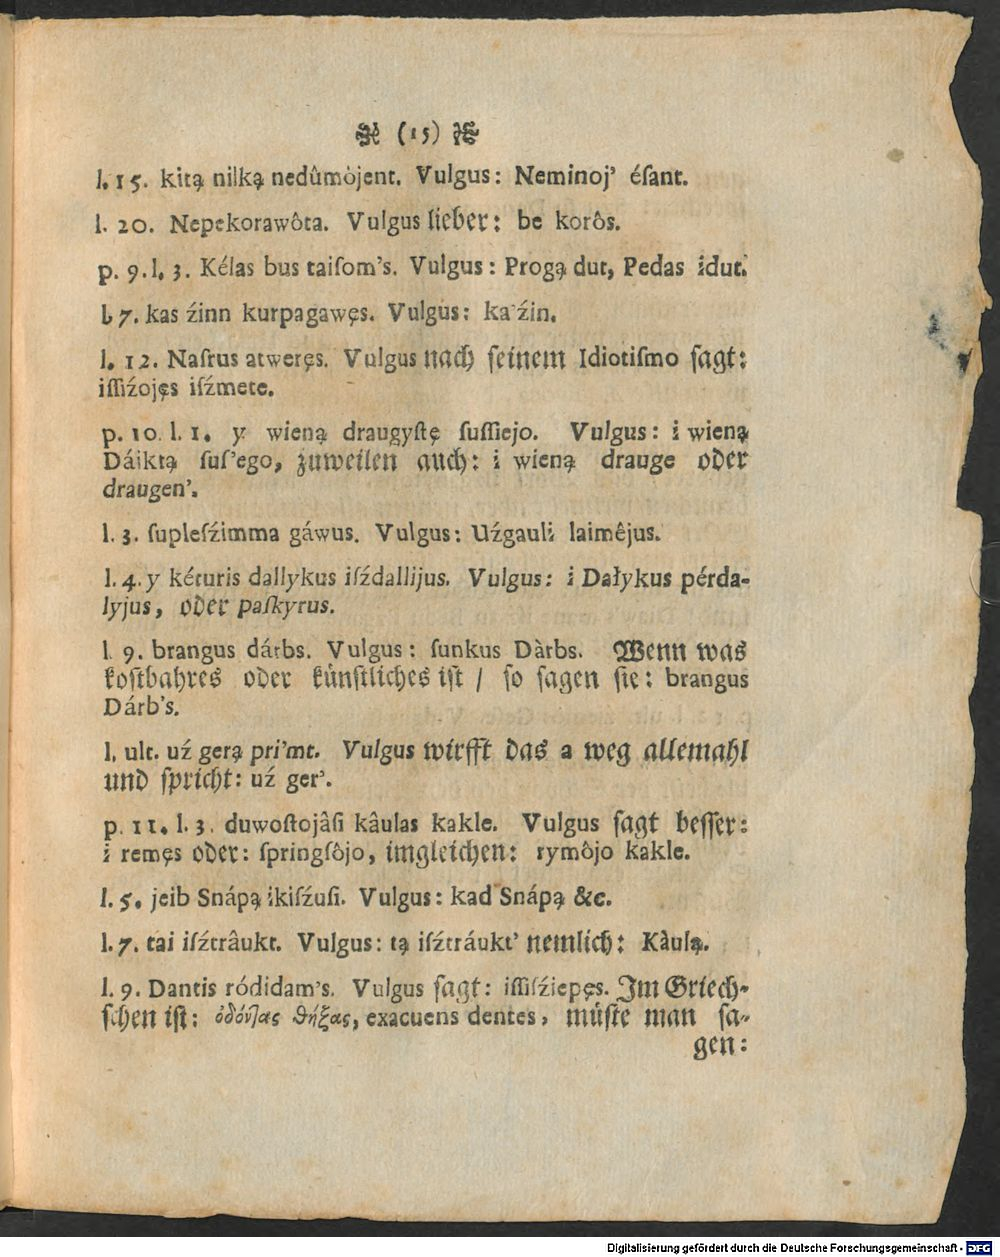 (15)
l. 15. kitą nilką nedûmòjent. Vulgus: Neminoj' éſant.
l. 20. Nepekorawôta. Vulgus lieber: be korôs.
p. 9. l. 3. Kélas bus taiſom's. Vulgus: Progą dut, Pedas idut.
l. 7. kas źinn kurpagawęs. Vulgus: ka źin.
l. 12. Naſrus atweręs. Vulgus nach ſeinem Idiotiſmo ſagt:
iſſiźojęs iſźmete.
p. 10. l. 1. y wieną draugyſtę ſuſſiejo. Vulgus: i wieną
Dáiktą ſuſ'ego, zuweilen auch: i wieną drauge oder
draugen'.
l. 3. ſupleſźimma gáwus. Vulgus: Uźgauli laimêjus.
l. 4. y kéturis dallykus iſźdallijus. Vulgus: i Dałykus pérda-
lyjus, oder paſkyrus.
l. 9. brangus dárbs. Vulgus: ſunkus Dàrbs. Wenn was
koſtbahres oder künſtliches iſt / ſo ſagen ſie: brangus
Dárb's.
l. ult. uź gerą pri'mt. Vulgus wirfft das a weg allemahl
und ſpricht: uź ger'.
p. 11. l. 3. duwoſtojâſi kâulas kakle. Vulgus ſagt beſſer:
i remęs oder: ſpringſôjo, imgleichen: rymôjo kakle.
l. 5. jeib Snápą ikiſźuſi. Vulgus: kad Snápą &c.
l. 7. tai iſźtrâukt. Vulgus: tą iſźtráukt' nemlich: Kàulą.
l. 9. Dantis ródidam's. Vulgus ſagt: iſſiſźiepęs. Im Griech-
ſchen iſt: ὀδόντας θήξας, exacuens dentes, müſte man ſa-
gen:
Digitalisierung gefördert durch die Deutsche Forschungsgemeinschaft - DFG